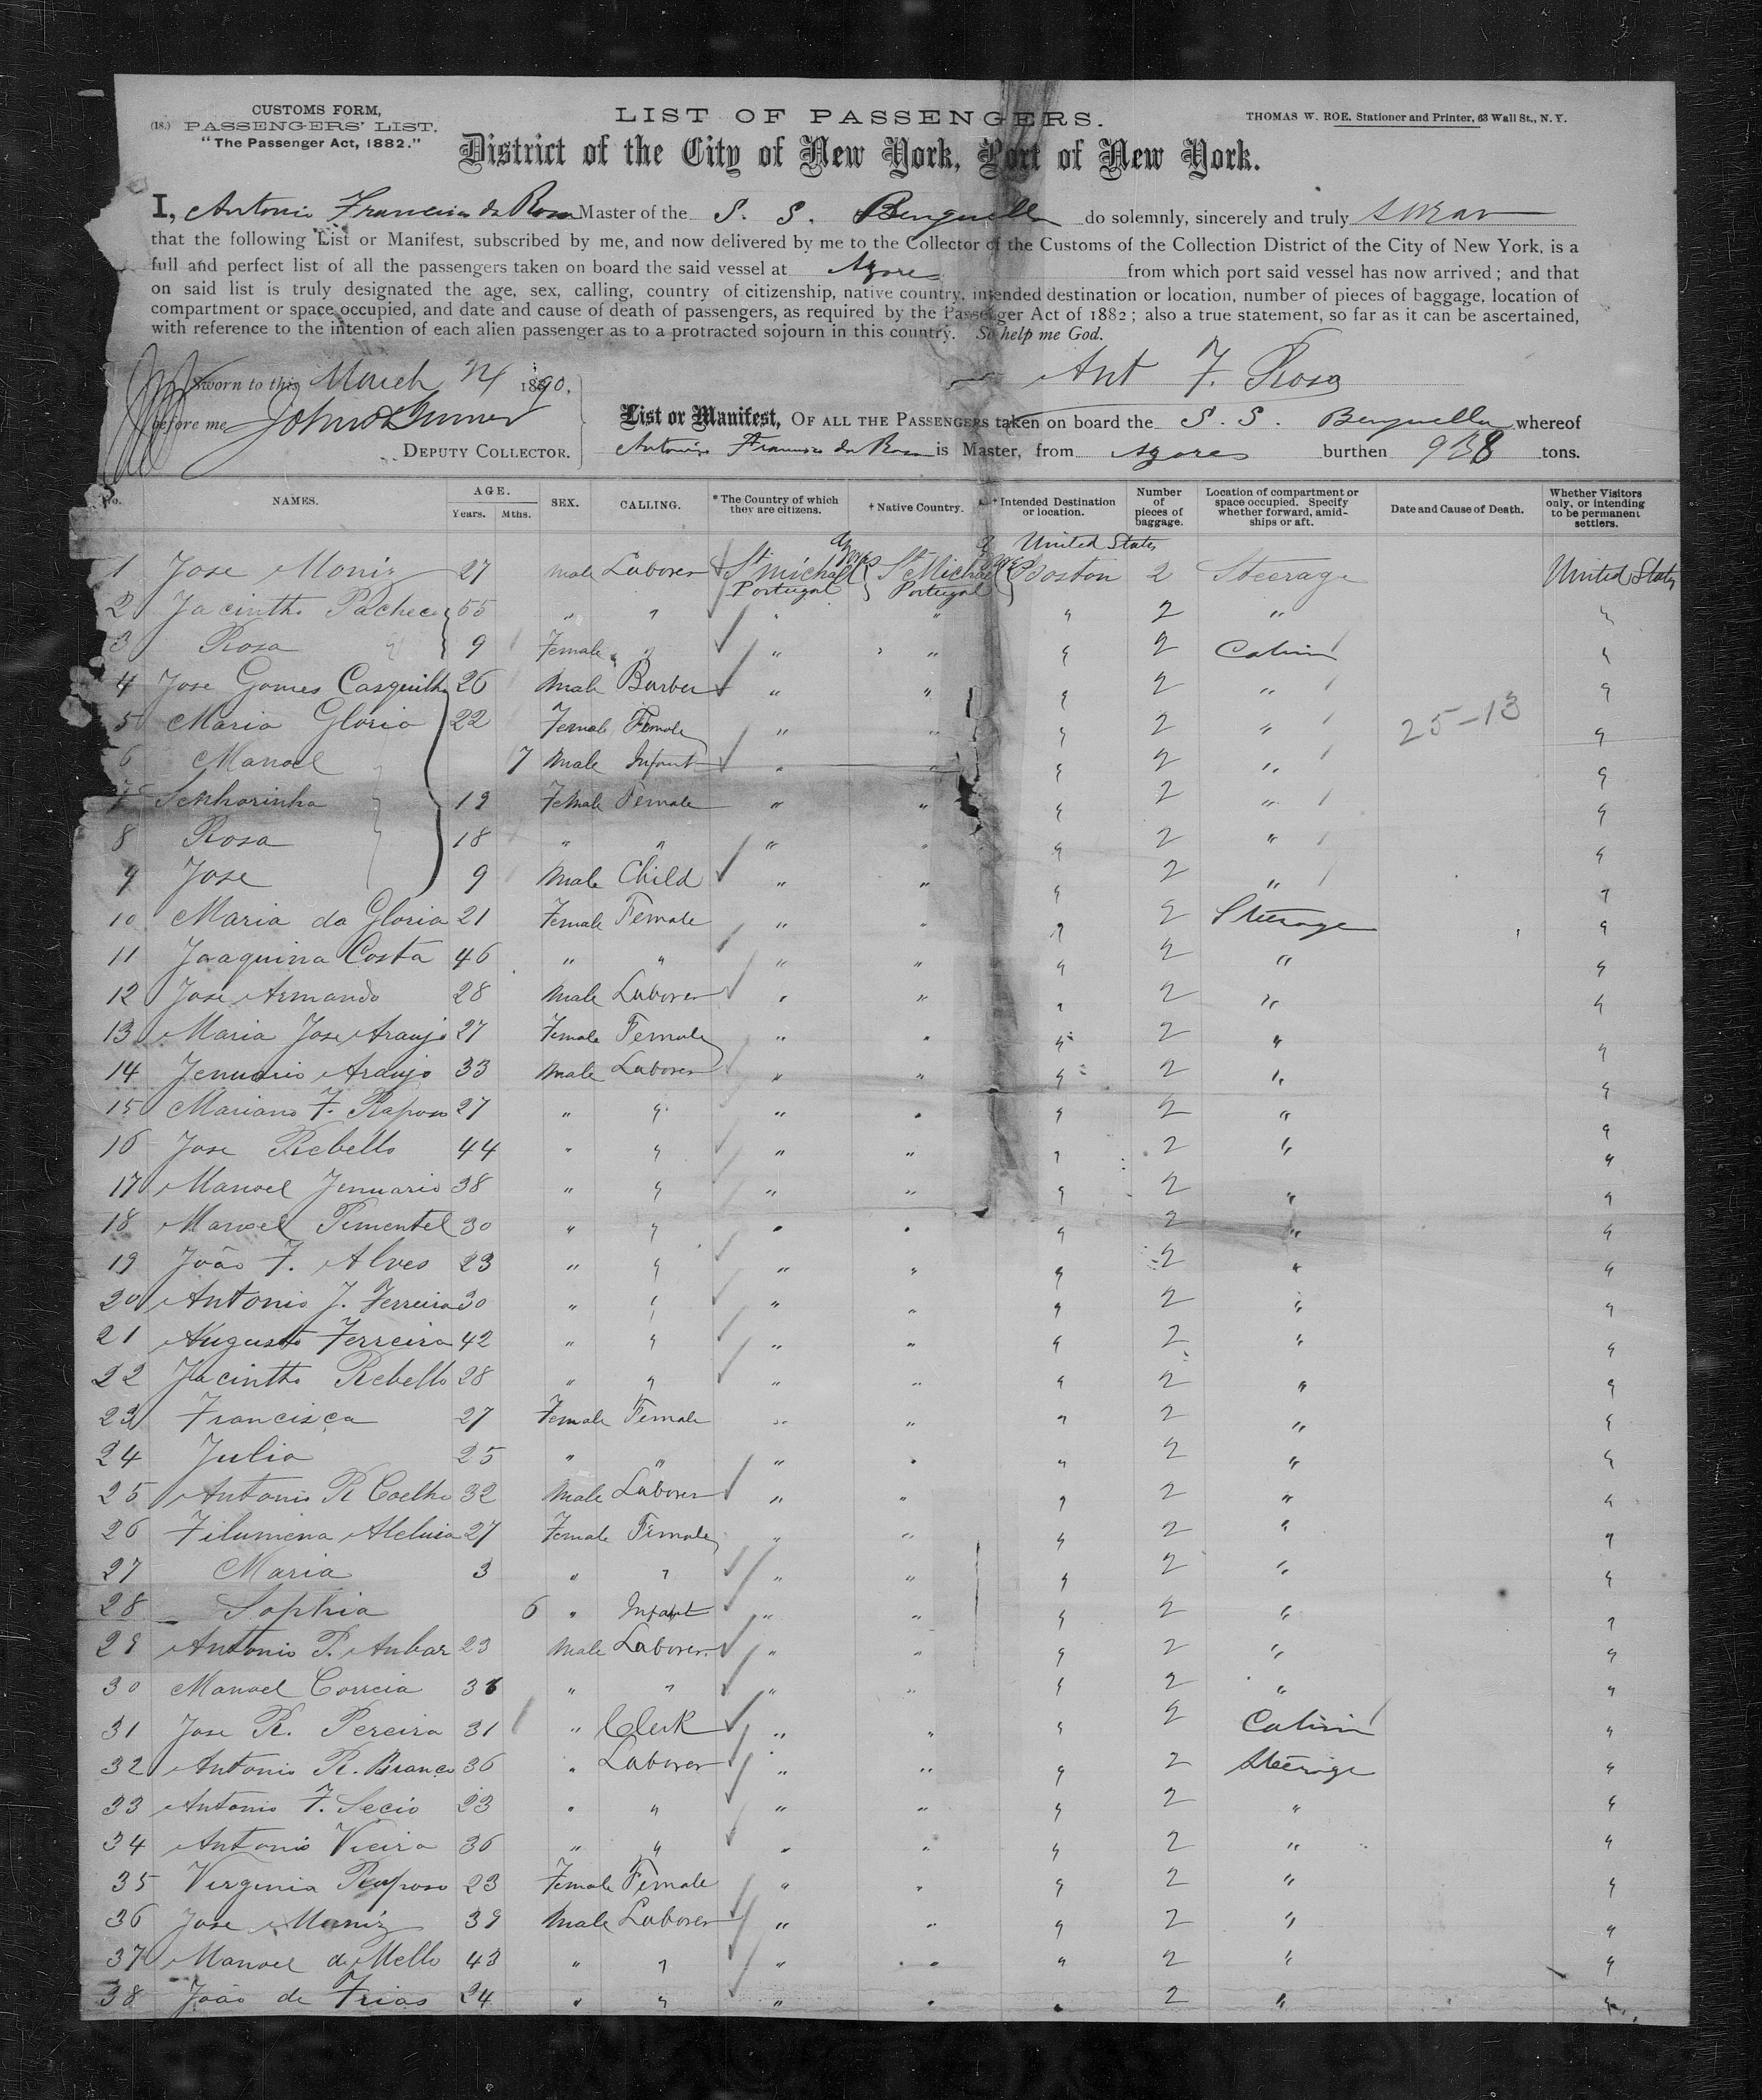 CUSTOMS FORM,
(18.) PASSENGERS' LIST.
"The Passenger Act, 1882."
LIST OF PASSENGERS.
THOMAS W. ROE, Stationer and Printer, 63 Wall St., N. Y.
District of the City of New York, Port of New York.
I, Antonio Francisco da Rosa Master of the S. S. Benguella do solemnly, sincerely and truly swear
that the following List or Manifest, subscribed by me, and now delivered by me to the Collector of the Customs of the Collection District of the City of New York, is a
full and perfect list of all the passengers taken on board the said vessel at Azores from which port said vessel has now arrived; and that
on said list is truly designated the age, sex, calling, country of citizenship, native country, intended destination or location, number of pieces of baggage, location of
compartment or space occupied, and date and cause of death of passengers, as required by the Passenger Act of 1882; also a true statement, so far as it can be ascertained,
with reference to the intention of each alien passenger as to a protracted sojourn in this country. So help me God.
Sworn to this March 24 1890.
Ant F. Rosa
before me
DEPUTY COLLECTOR.
List or Manifest, OF ALL THE PASSENGERS taken on board the S. S. Benguella whereof
Antonio Francisco da Rosa is Master, from Azores burthen 938 tons.
No. NAMES. AGE. Years. Mths. SEX. CALLING. * The Country of which they are citizens. † Native Country. † Intended Destination or location. Number of pieces of baggage. Location of compartment or space occupied. Specify whether forward, amidships or aft. Date and Cause of Death. Whether Visitors only, or intending to be permanent settlers.
Azores United States
1 Jose Moniz 27 Male Laborer St Michael Portugal St Michael Portugal Boston 2 Steerage United States
2 Jacintho Pacheco 55 " " " " " 2 " "
3 Rosa 9 Female " " " " 2 Cabin "
4 Jose Gomes Casquilho 26 Male Barber " " " 2 " "
5 Maria Gloria 22 Female Female " " " 2 " 25-13 "
6 Manoel 7 Male Infant " " " 2 " "
7 Senhorinha 19 Female Female " " " 2 " "
8 Rosa 18 " " " " " 2 " "
9 Jose 9 Male Child " " " 2 " "
10 Maria da Gloria 21 Female Female " " " 2 Steerage "
11 Joaquina Costa 46 " " " " " 2 " "
12 Jose Armando 28 Male Laborer " " " 2 " "
13 Maria Jose Araujo 27 Female Female " " " 2 " "
14 Jenuario Araujo 33 Male Laborer " " " 2 " "
15 Mariano F. Raposo 27 " " " " " 2 " "
16 Jose Rebello 44 " " " " " 2 " "
17 Manoel Jenuario 38 " " " " " 2 " "
18 Manoel Pimentel 30 " " " " " 2 " "
19 João F. Alves 23 " " " " " 2 " "
20 Antonio J. Ferreira 30 " " " " " 2 " "
21 Augusto Ferreira 42 " " " " " 2 " "
22 Jacintho Rebello 28 " " " " " 2 " "
23 Francisca 27 Female Female " " " 2 " "
24 Julia 25 " " " " " 2 " "
25 Antonio R Coelho 32 Male Laborer " " " 2 " "
26 Filumena Aleluia 27 Female Female " " " 2 " "
27 Maria 3 " " " " " 2 " "
28 Sophia 6 " Infant " " " 2 " "
29 Antonio P. Anbar 23 Male Laborer " " " 2 " "
30 Manoel Correia 36 " " " " " 2 " "
31 Jose R. Pereira 31 " Clerk " " " 2 Cabin "
32 Antonio R. Branco 36 " Laborer " " " 2 Steerage "
33 Antonio F. Secio 23 " " " " " 2 " "
34 Antonio Vieira 36 " " " " " 2 " "
35 Virginia Raposo 23 Female Female " " " 2 " "
36 Jose Moniz 39 Male Laborer " " " 2 " "
37 Manoel de Mello 43 " " " " " 2 " "
38 João de Frias 24 " " " " " 2 " "